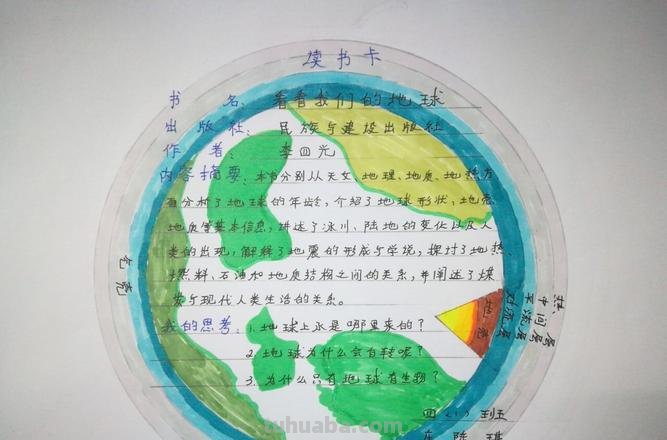 读书卡
书 名：看看我们的地球
出版社：民族与建设出版社
作 者：李四光
内容摘要：本书分别从天文、地理、地质、地热方
面分析了地球的年龄，介绍了地球形状、地壳、
地质等基本信息，讲述了冰川、陆地的变化以及人
类的出现，解释了地震的形成与学说，探讨了地热、
燃料、石油和地质结构之间的关系，并阐述了煤
炭与现代人类生活的关系。
我的思考：1.地球上水是哪里来的？
2.地球为什么会自转呢？
3.为什么只有地球有生物？
热层
中间层
平流层
对流层
地
四（1）班
tuhuaba.com